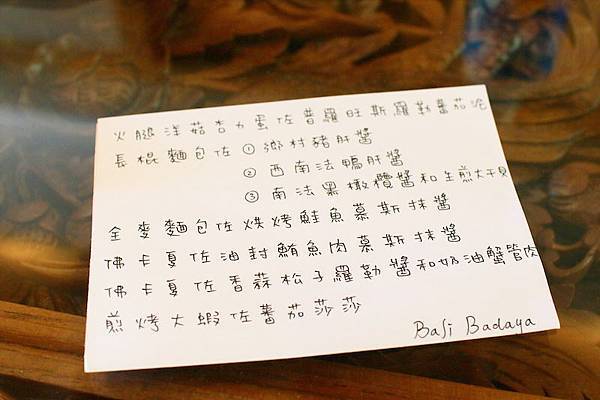 火腿洋菇杏力蛋佐普羅旺斯羅勒蕃茄泥
長棍麵包佐 ① 鄉村豬肝醬
② 西南法鴨肝醬
③ 南法黑橄欖醬和生煎大干貝
全麥麵包佐烘烤鮭魚慕斯抹醬
佛卡夏佐油封鮪魚肉慕斯抹醬
佛卡夏佐香蒜松子羅勒醬和奶油蟹管肉
煎烤大蝦佐蕃茄莎莎
Bali Badaya